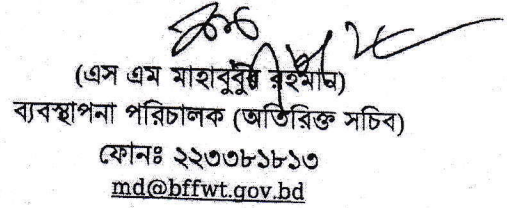 (এস এম মাহাবুবুর রহমান)
ব্যবস্থাপনা পরিচালক (অতিরিক্ত সচিব)
ফোনঃ ২২৩৩৮১৮১৩
md@bffwt.gov.bd